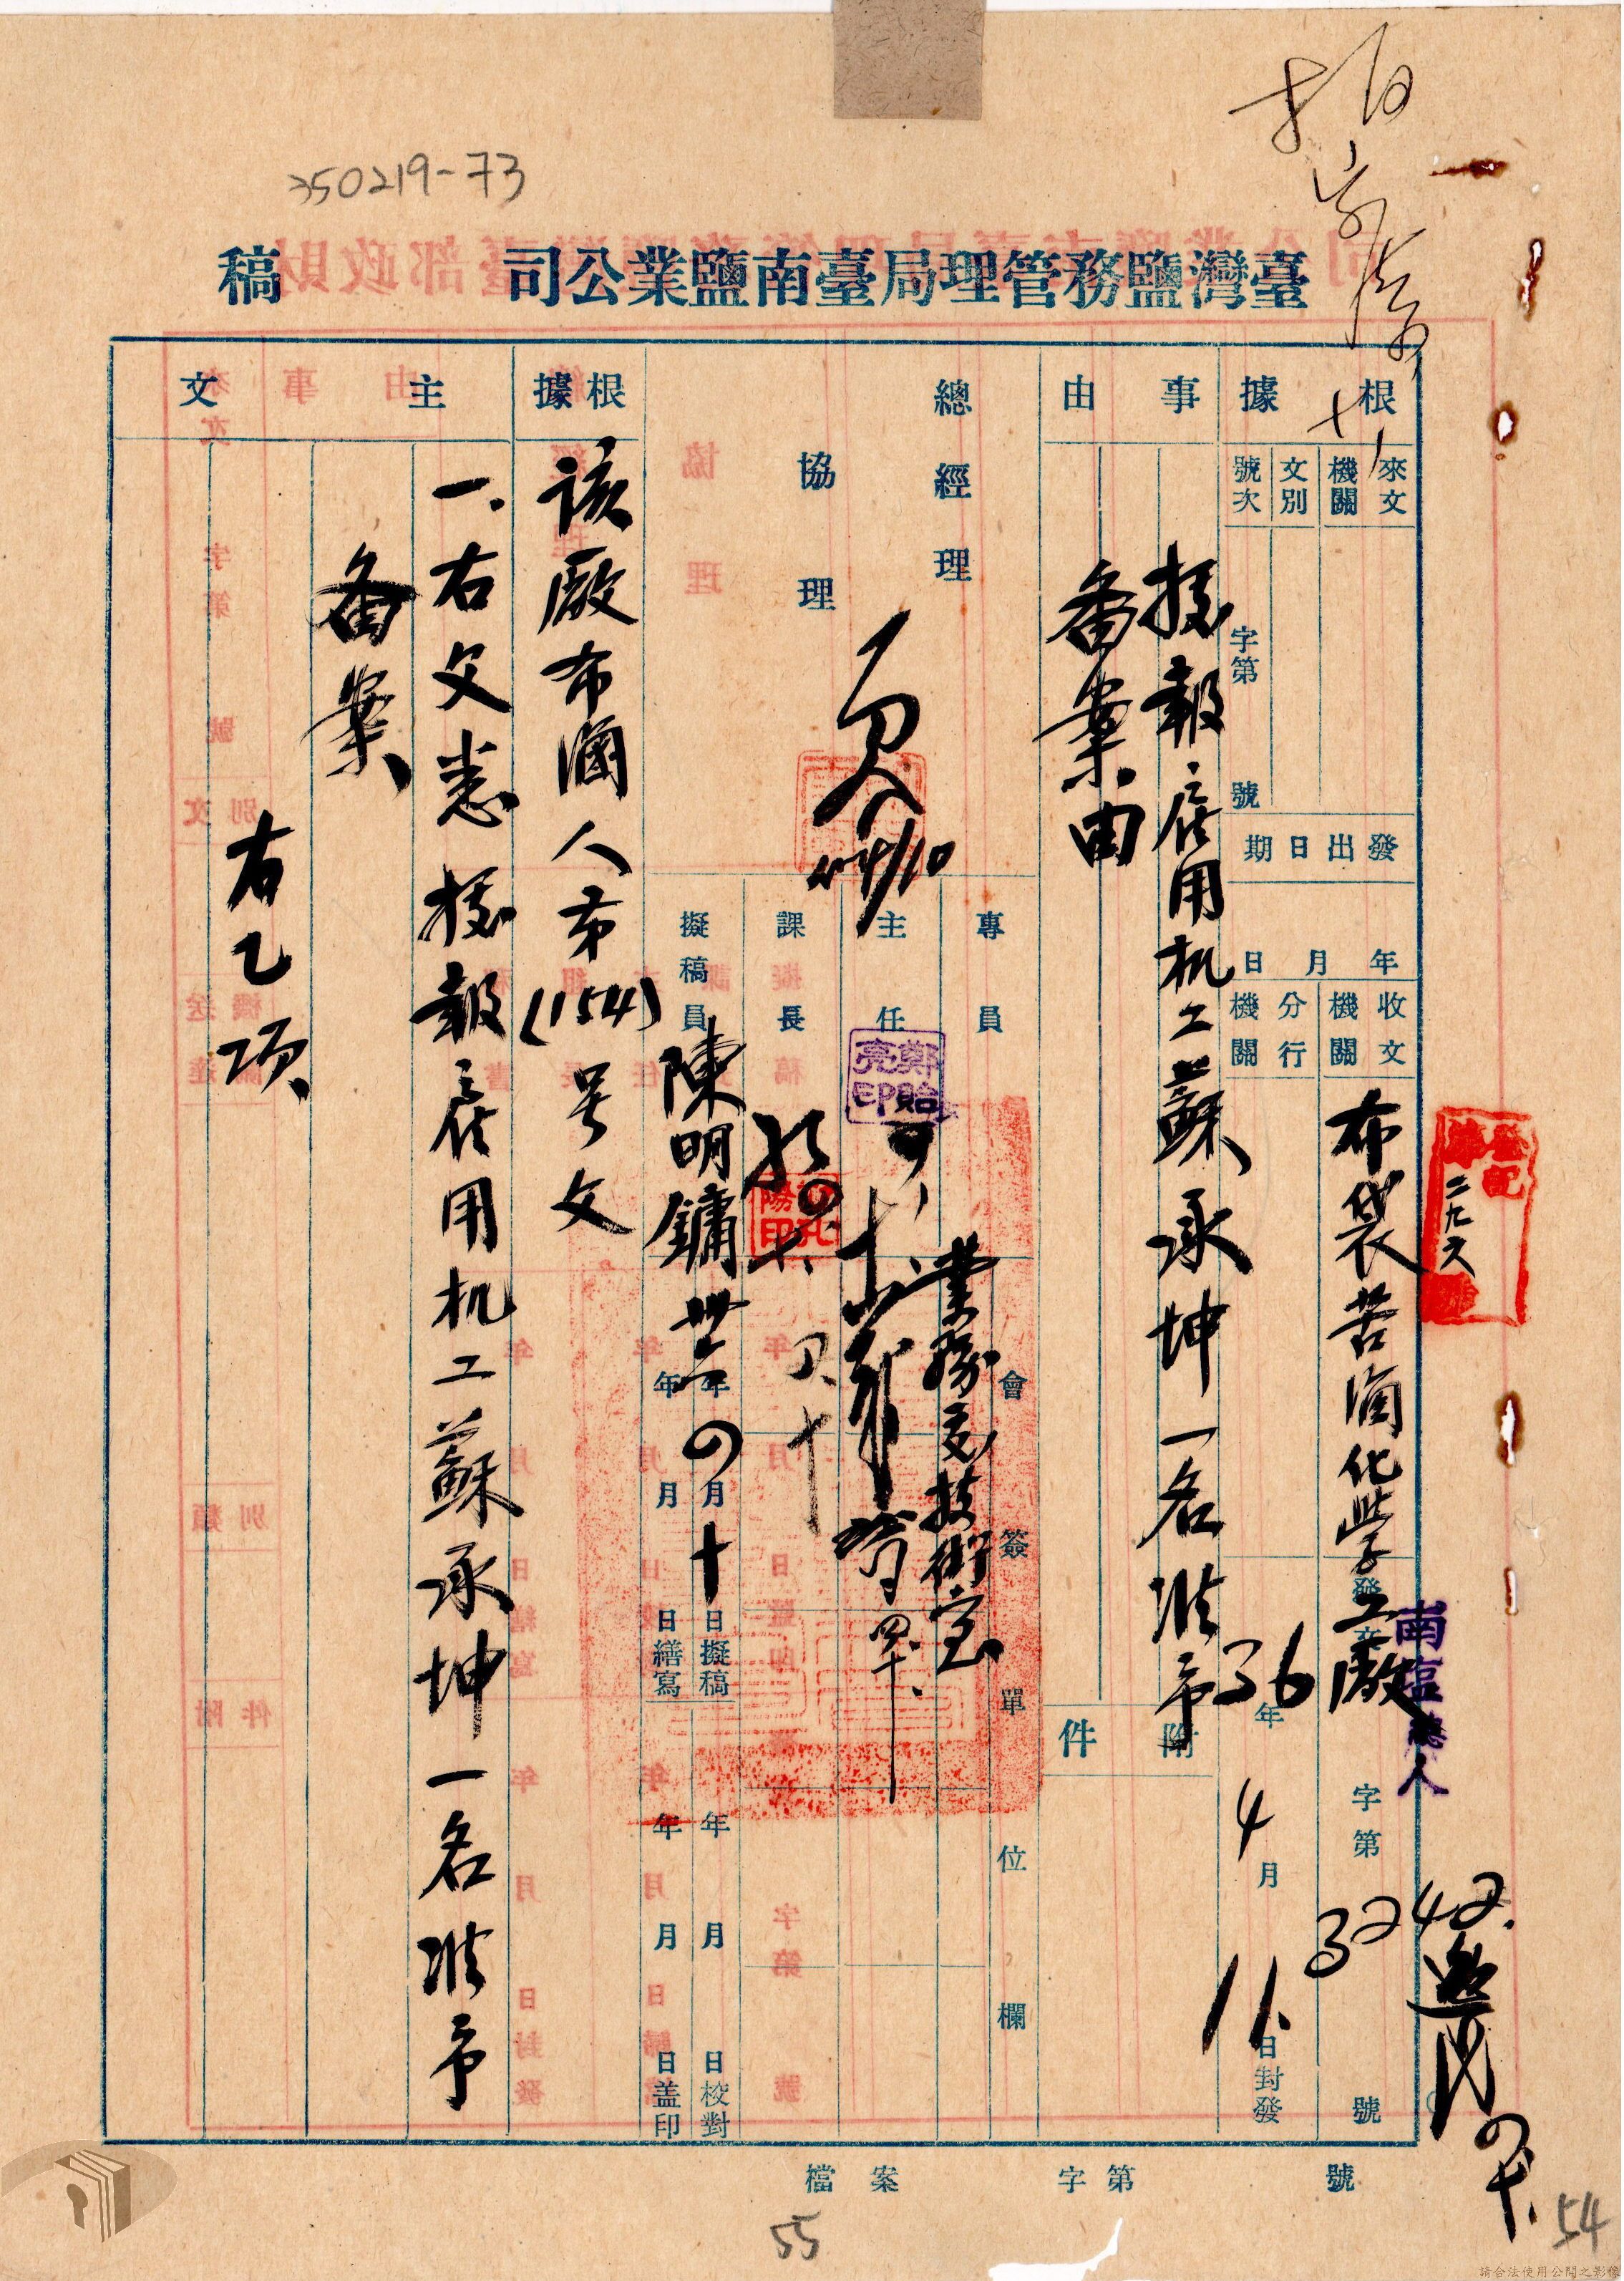 350219-73
臺灣鹽務管理局臺南鹽業公司 稿
根據
來文機關
文別
號次
字第 號
發出日期
年 月 日
收文機關
布袋苦滷化學工廠
分行機關
發文
南鹽總人
字第 3242 號
36年4月11日封發
登記
二九六
事由
據報雇用机工蘇承坤一名准予
备案由
附件
總經理
協理
4/10
專員
主任
鄭貽亮印
課長
擬稿員
陳明鏞
會簽單位欄
業務處技術室
卅六年四月十日擬稿
年 月 日繕寫
年 月 日校對
年 月 日蓋印
根據
該廠布滷人布(154)号文
主文
一、右文悉據報雇用机工蘇承坤一名准予
备案
右乙項
檔案 字第 號
55
54
請合法使用公開之影像